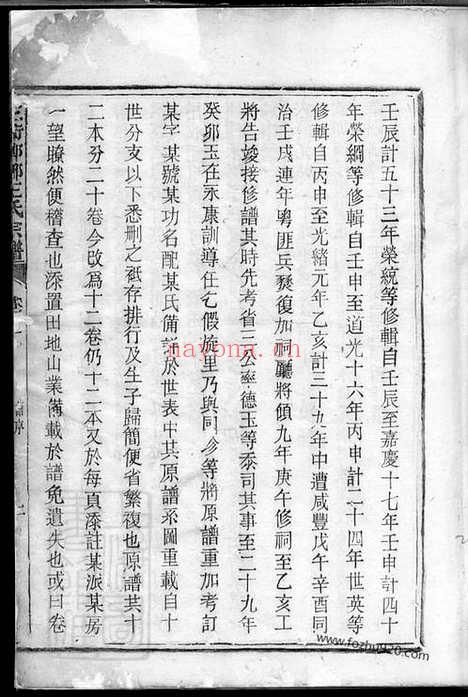 壬辰計五十三年榮統等修輯自壬辰至嘉慶十七年壬申計四十
年榮綱等修輯自壬申至道光十六年丙申計二十四年世英等
修輯自丙申至光緒元年乙亥計三十九年中遭咸豐戊午辛酉同
治壬戌連年粵匪兵燹復加祠廳將傾九年庚午修祠至乙亥工
將告竣接修譜其時先考省三公率德玉等忝司其事至二十九年
癸卯玉在永康訓導任乞假旋里乃與同診等將原譜重加考訂
某字某號某功名配某氏備詳於世表中其原譜系圖重載自十
世分支以下悉刪之祗存排行及生子歸簡便省繁復也原譜共十
二本分二十卷今改爲十二卷仍十二本又於每頁添註某派某房
一望瞭然便稽查也添置田地山業備載於譜免遺失也或曰卷
王氏宗譜
卷
譜序
nayona.cn
www.fozhu920.com